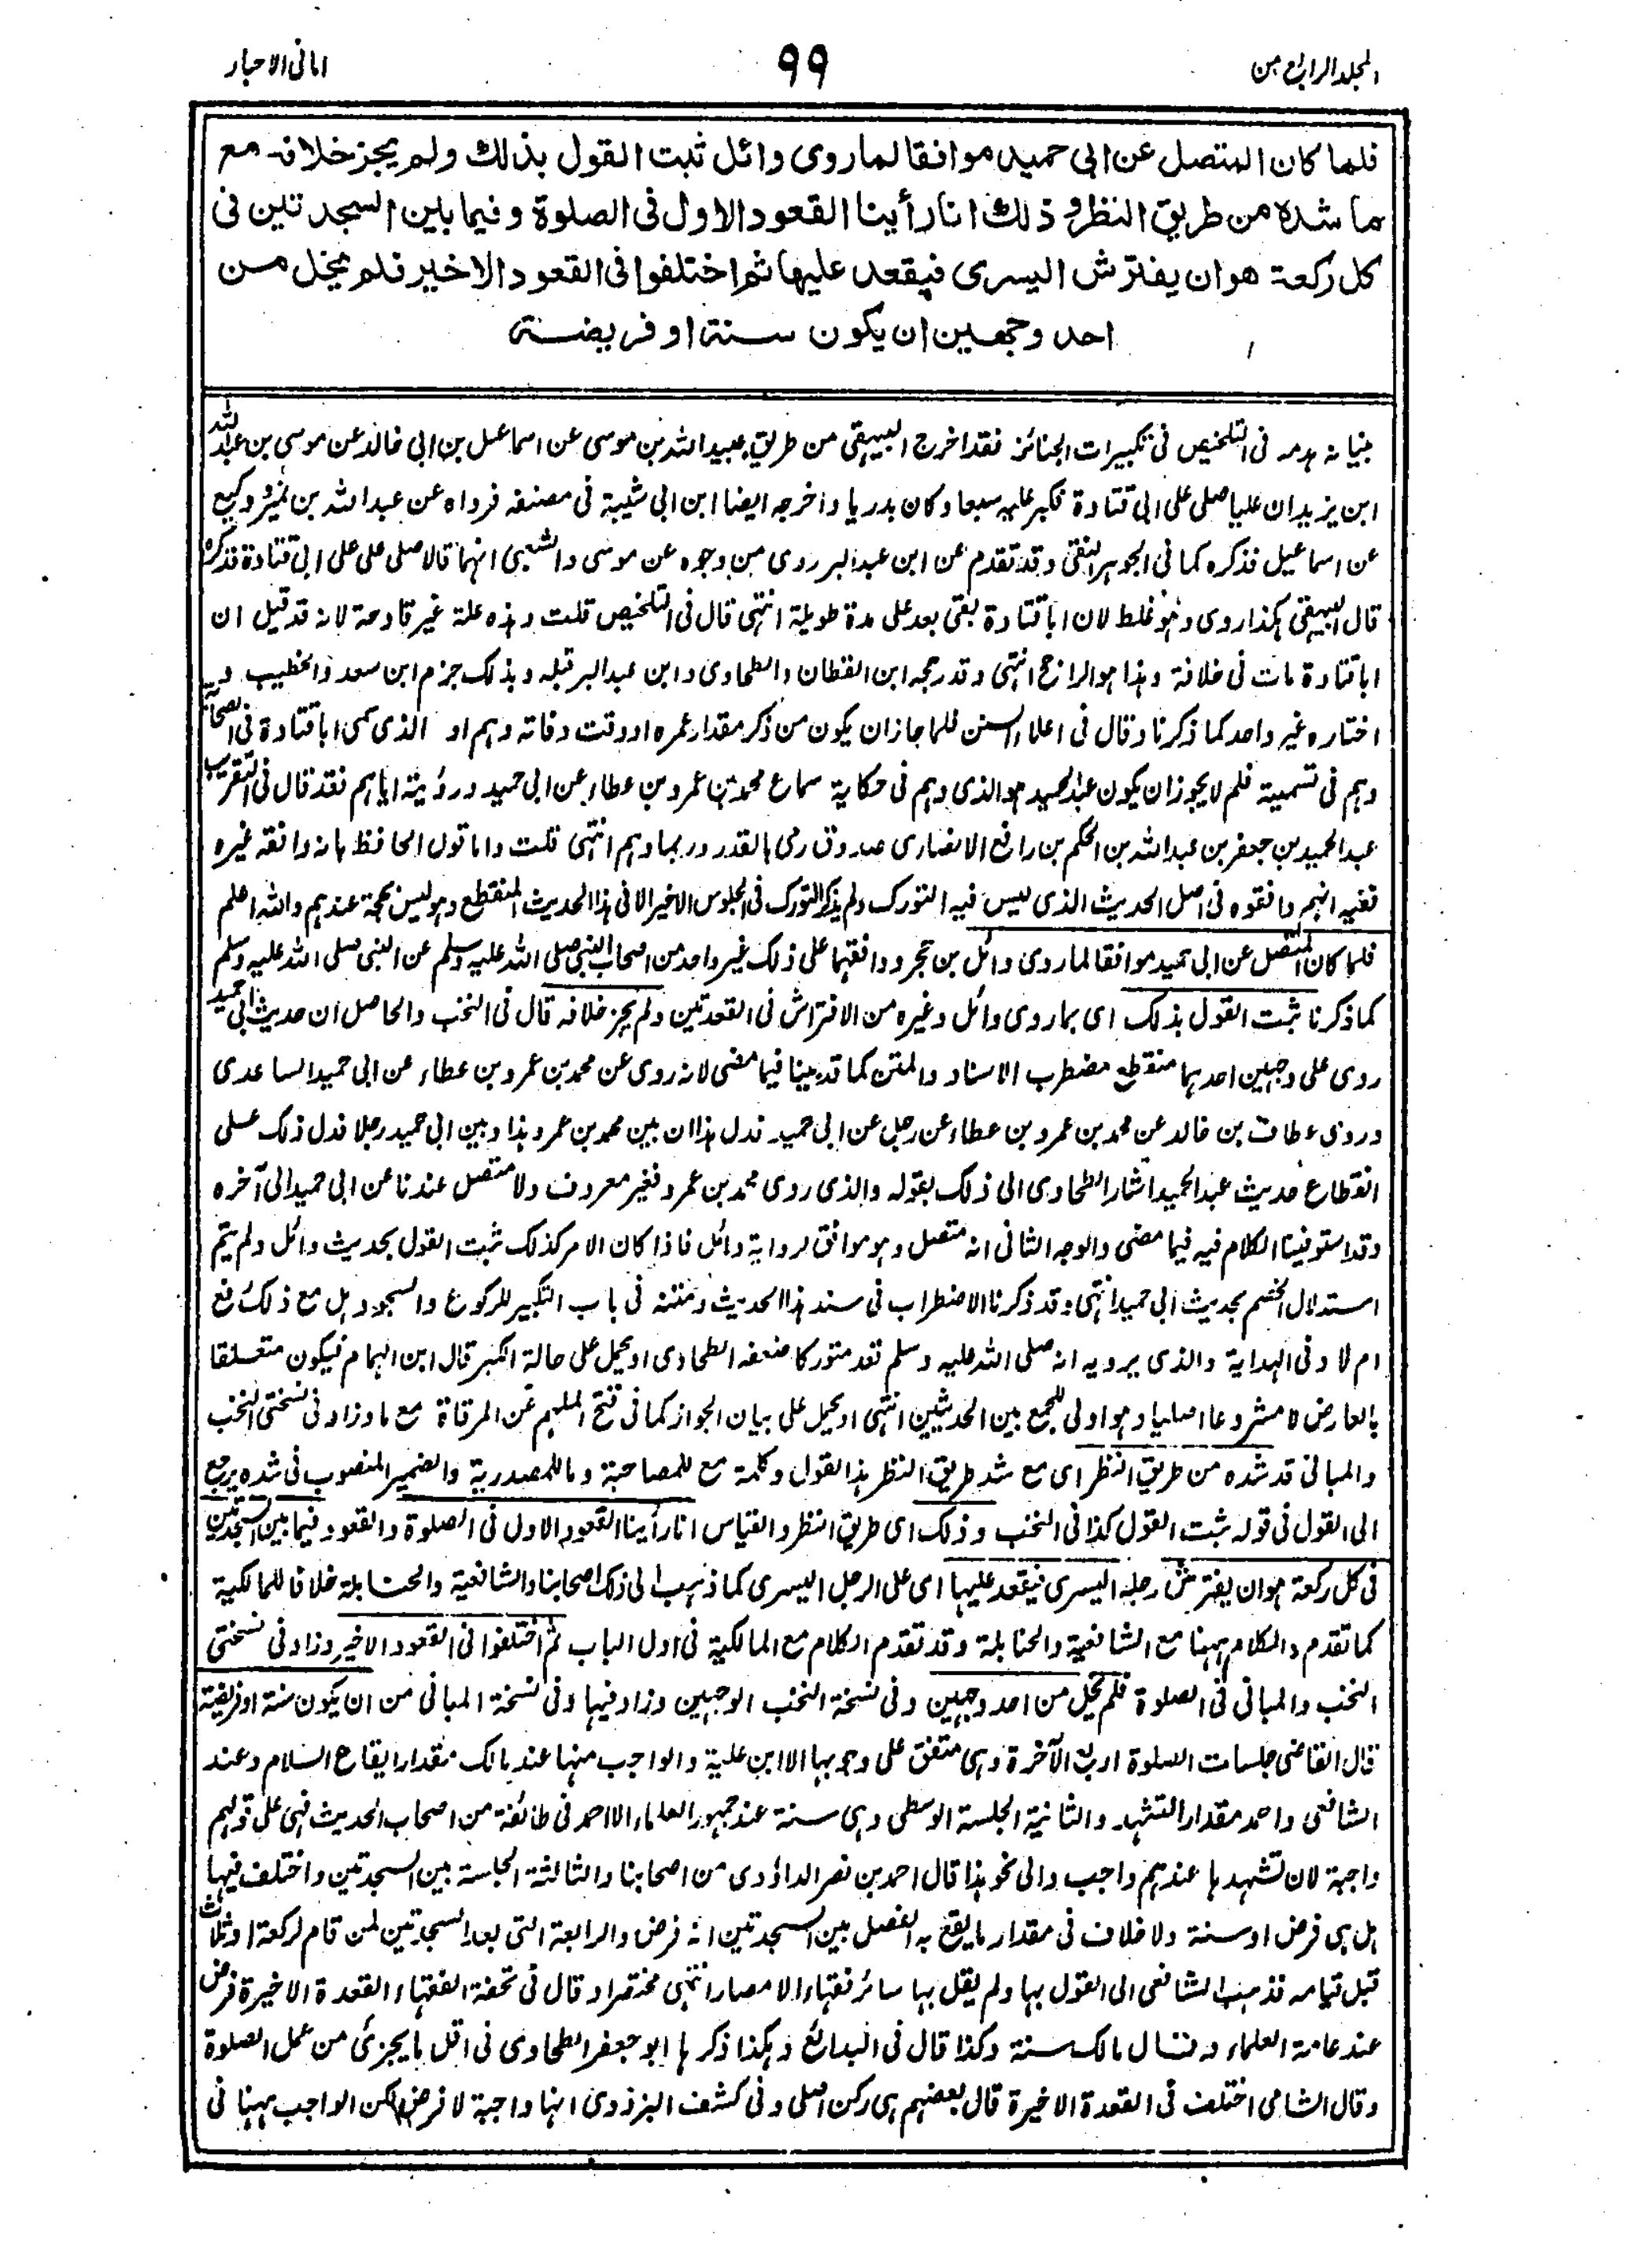 المجلد الرابع من
٩٩
امانی الاحبار
فلما کان المتصل عن ابی حمید موافقا لما روی وائل ثبت القول بذلك ولم یجز خلافه مع
ما شده من طریق النظر و ذلك انا رأینا القعود الاول فی الصلوة و فیما بین السجدتین فی
کل رکعة هو ان یفترش الیسری فیقعد علیها ثم اختلفوا فی القعود الاخیر فلم یخل من
احد وجهین ان یکون سنة او فریضة
فی التلخیص فی تکبیرات الجنائز فقد اخرج البیهقی من طریق عبید الله بن موسی عن اسماعیل بن ابی خالد عن موسی بن عبد الله
ابن یزید ان علیا صلی علی ابی قتادة فکبر علیه سبعا وکان بدریا واخرجه ایضا ابن ابی شیبة فی مصنفه فرواه عن عبد الله بن نمیر و وکیع
عن اسماعیل فذکره کما فی الجوهر النقی وقد تقدم عن ابن عبد البر روی من وجوه عن موسی والشعبی انهما قالا صلی علی علی ابی قتادة فذکره
قال البیهقی هکذا روی وهو غلط لان ابا قتادة بقی بعد علی مدة طویلة انتهی قال فی التلخیص قلت وهذه علة غیر قادحة لانه قد قیل ان
ابا قتادة مات فی خلافة وهذا هو الراجح انتهی وقد رجحه ابن القطان والطحاوی وابن عبد البر قبله وبذلک جزم ابن سعد والخطیب و به
اختاره غیر واحد کما ذکرنا وقال فی اعلاء السنن فلما جاز ان یکون من ذکر مقدار عمره او وقت وفاته وهم او الذی سمی ابا قتادة فی الصحابة
وهم فی تسمیته فلم لا یجوز ان یکون عبد الحمید هو الذی وهم فی حکایة سماع محمد بن عمرو بن عطاء عن ابی حمید و رؤیته ایاهم فقد قال فی التقریب
عبد الحمید بن جعفر بن عبد الله بن الحکم بن رافع الانصاری صدوق رمی بالقدر وربما وهم انتهی قلت واما قول الحافظ بانه وافقه غیره
ففیه انهم وافقوه فی اصل الحدیث الذی لیس فیه التورک ولم یذکر التورک فی الجلوس الاخیر الا فی هذا الحدیث المنقطع وهو لیس بحجة عندهم والله اعلم
فلما کان المتصل عن ابی حمید موافقا لما روی وائل بن حجر و وافقهما علی ذلک غیر واحد من اصحاب النبی صلی الله علیه وسلم عن النبی صلی الله علیه وسلم
کما ذکرنا ثبت القول بذلک ای بما روی وائل وغیره من الافتراش فی القعدتین ولم یجز خلافه قال فی النخب والحاصل ان حدیث ابی حمید
روی علی وجهین احدهما منقطع مضطرب الاسناد والمتن کما قد بینا فیما مضی لانه روی عن محمد بن عمرو بن عطاء عن ابی حمید الساعدی
وروی عطاف بن خالد عن محمد بن عمرو بن عطاء عن رجل عن ابی حمید فدل هذا ان بین محمد بن عمرو هذا وبین ابی حمید رجلا فدل ذلک علی
انقطاع حدیث عبد الحمید اشار الطحاوی الی ذلک بقوله والذی روی محمد بن عمرو فغیر معروف ولا متصل عندنا عن ابی حمید الی آخره
وقد استوفینا الکلام فیه فیما مضی والوجه الثانی انه متصل وهو موافق لروایة وائل فاذا کان الامر کذلک ثبت القول بحدیث وائل ولم یتم
استدلال الخصم بحدیث ابی حمید انتهی وقد ذکرنا الاضطراب فی سند هذا الحدیث ومتنه فی باب التکبیر للرکوع والسجود هل مع ذلک رفع
ام لا وفی الهدایة والذی یرویه انه صلی الله علیه وسلم قعد متورکا ضعفه الطحاوی او یحمل علی حالة الکبر قال ابن الهمام فیکون متعلقا
بالعارض لا مشروعا اصلیا وهو اولی للجمع بین الحدیثین انتهی او یحمل علی بیان الجواز کما فی فتح الملهم عن المرقاة مع ما وزاد فی نسختی النخب
والمبانی قد شده من طریق النظر ای مع شد طریق النظر هذا القول وکلمة مع للمصاحبة وما للمصدریة والضمیر المنصوب فی شده یرجع
الی القول فی قوله ثبت القول کذا فی النخب وذلک ای طریق النظر والقیاس انا رأینا القعود الاول فی الصلوة والقعود فیما بین السجدتین
فی کل رکعة هو ان یفترش رجله الیسری فیقعد علیها ای علی الرجل الیسری کما ذهب الی ذلک اصحابنا والشافعیة والحنابلة خلافا للمالکیة
کما تقدم والکلام ههنا مع الشافعیة والحنابلة وقد تقدم الکلام مع المالکیة فی اول الباب ثم اختلفوا فی القعود الاخیر وزاد فی نسختی
النخب والمبانی فی الصلوة فلم یخل من احد وجهین وفی نسخة النخب الوجهین وزاد فیها وفی نسخة المبانی من ان یکون سنة او فریضة
قال القاضی جلسات الصلوة اربع الآخرة وهی متفق علی وجوبها الا ابن علیة والواجب منها عند مالک مقدار ایقاع السلام وعند
الشافعی واحمد مقدار التشهد والثانیة الجلسة الوسطی وهی سنة عند جمهور العلماء الا احمد فی طائفة من اصحاب الحدیث فهی علی قولهم
واجبة لان تشهدها عندهم واجب والی نحو هذا قال احمد بن نصر الداؤدی من اصحابنا والثالثة الجلسة بین السجدتین واختلف فیها
هل هی فرض او سنة ولا خلاف فی مقدار ما یقع به الفصل بین السجدتین انه فرض والرابعة التی بعد السجدتین لمن قام لرکعة او ثلاث
قبل قیامه فذهب الشافعی الی القول بها ولم یقل بها سائر فقهاء الامصار انتهی مختصرا وقال فی تحفة الفقهاء القعدة الاخیرة فرض
عند عامة العلماء وقال مالک سنة وکذا قال فی البدائع وهکذا ذکرها ابو جعفر الطحاوی فی اقل ما یجزئ من عمل الصلوة
وقال الشامی اختلف فی القعدة الاخیرة قال بعضهم هی رکن اصلی وفی کشف البزدوی انها واجبة لا فرض لکن الواجب ههنا فی